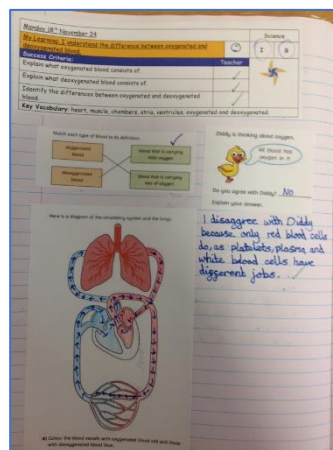 Monday 18th November 24
My Learning: I understand the difference between oxygenated and
deoxygenated blood.
Science
I
S
Success Criteria:
Teacher
Explain what oxygenated blood consists of.
Explain what deoxygenated blood consists of.
Identify the differences between oxygenated and deoxygenated
blood.
Key Vocabulary: heart, muscle, chambers, atria, ventricles, oxygenated and deoxygenated.
Match each type of blood to its definition.
oxygenated
blood
blood that is carrying
little oxygen
deoxygenated
blood
blood that is carrying
lots of oxygen
Diddy is thinking about oxygen.
All blood has
oxygen in it
Do you agree with Diddy? No
Explain your answer.
I disagree with Diddy
because only red blood cells
do, as platelets, plasma, and
white blood cells have
different jobs.
Here is a diagram of the circulatory system and the lungs.
a) Colour the blood vessels with oxygenated blood red and those
with deoxygenated blood blue.